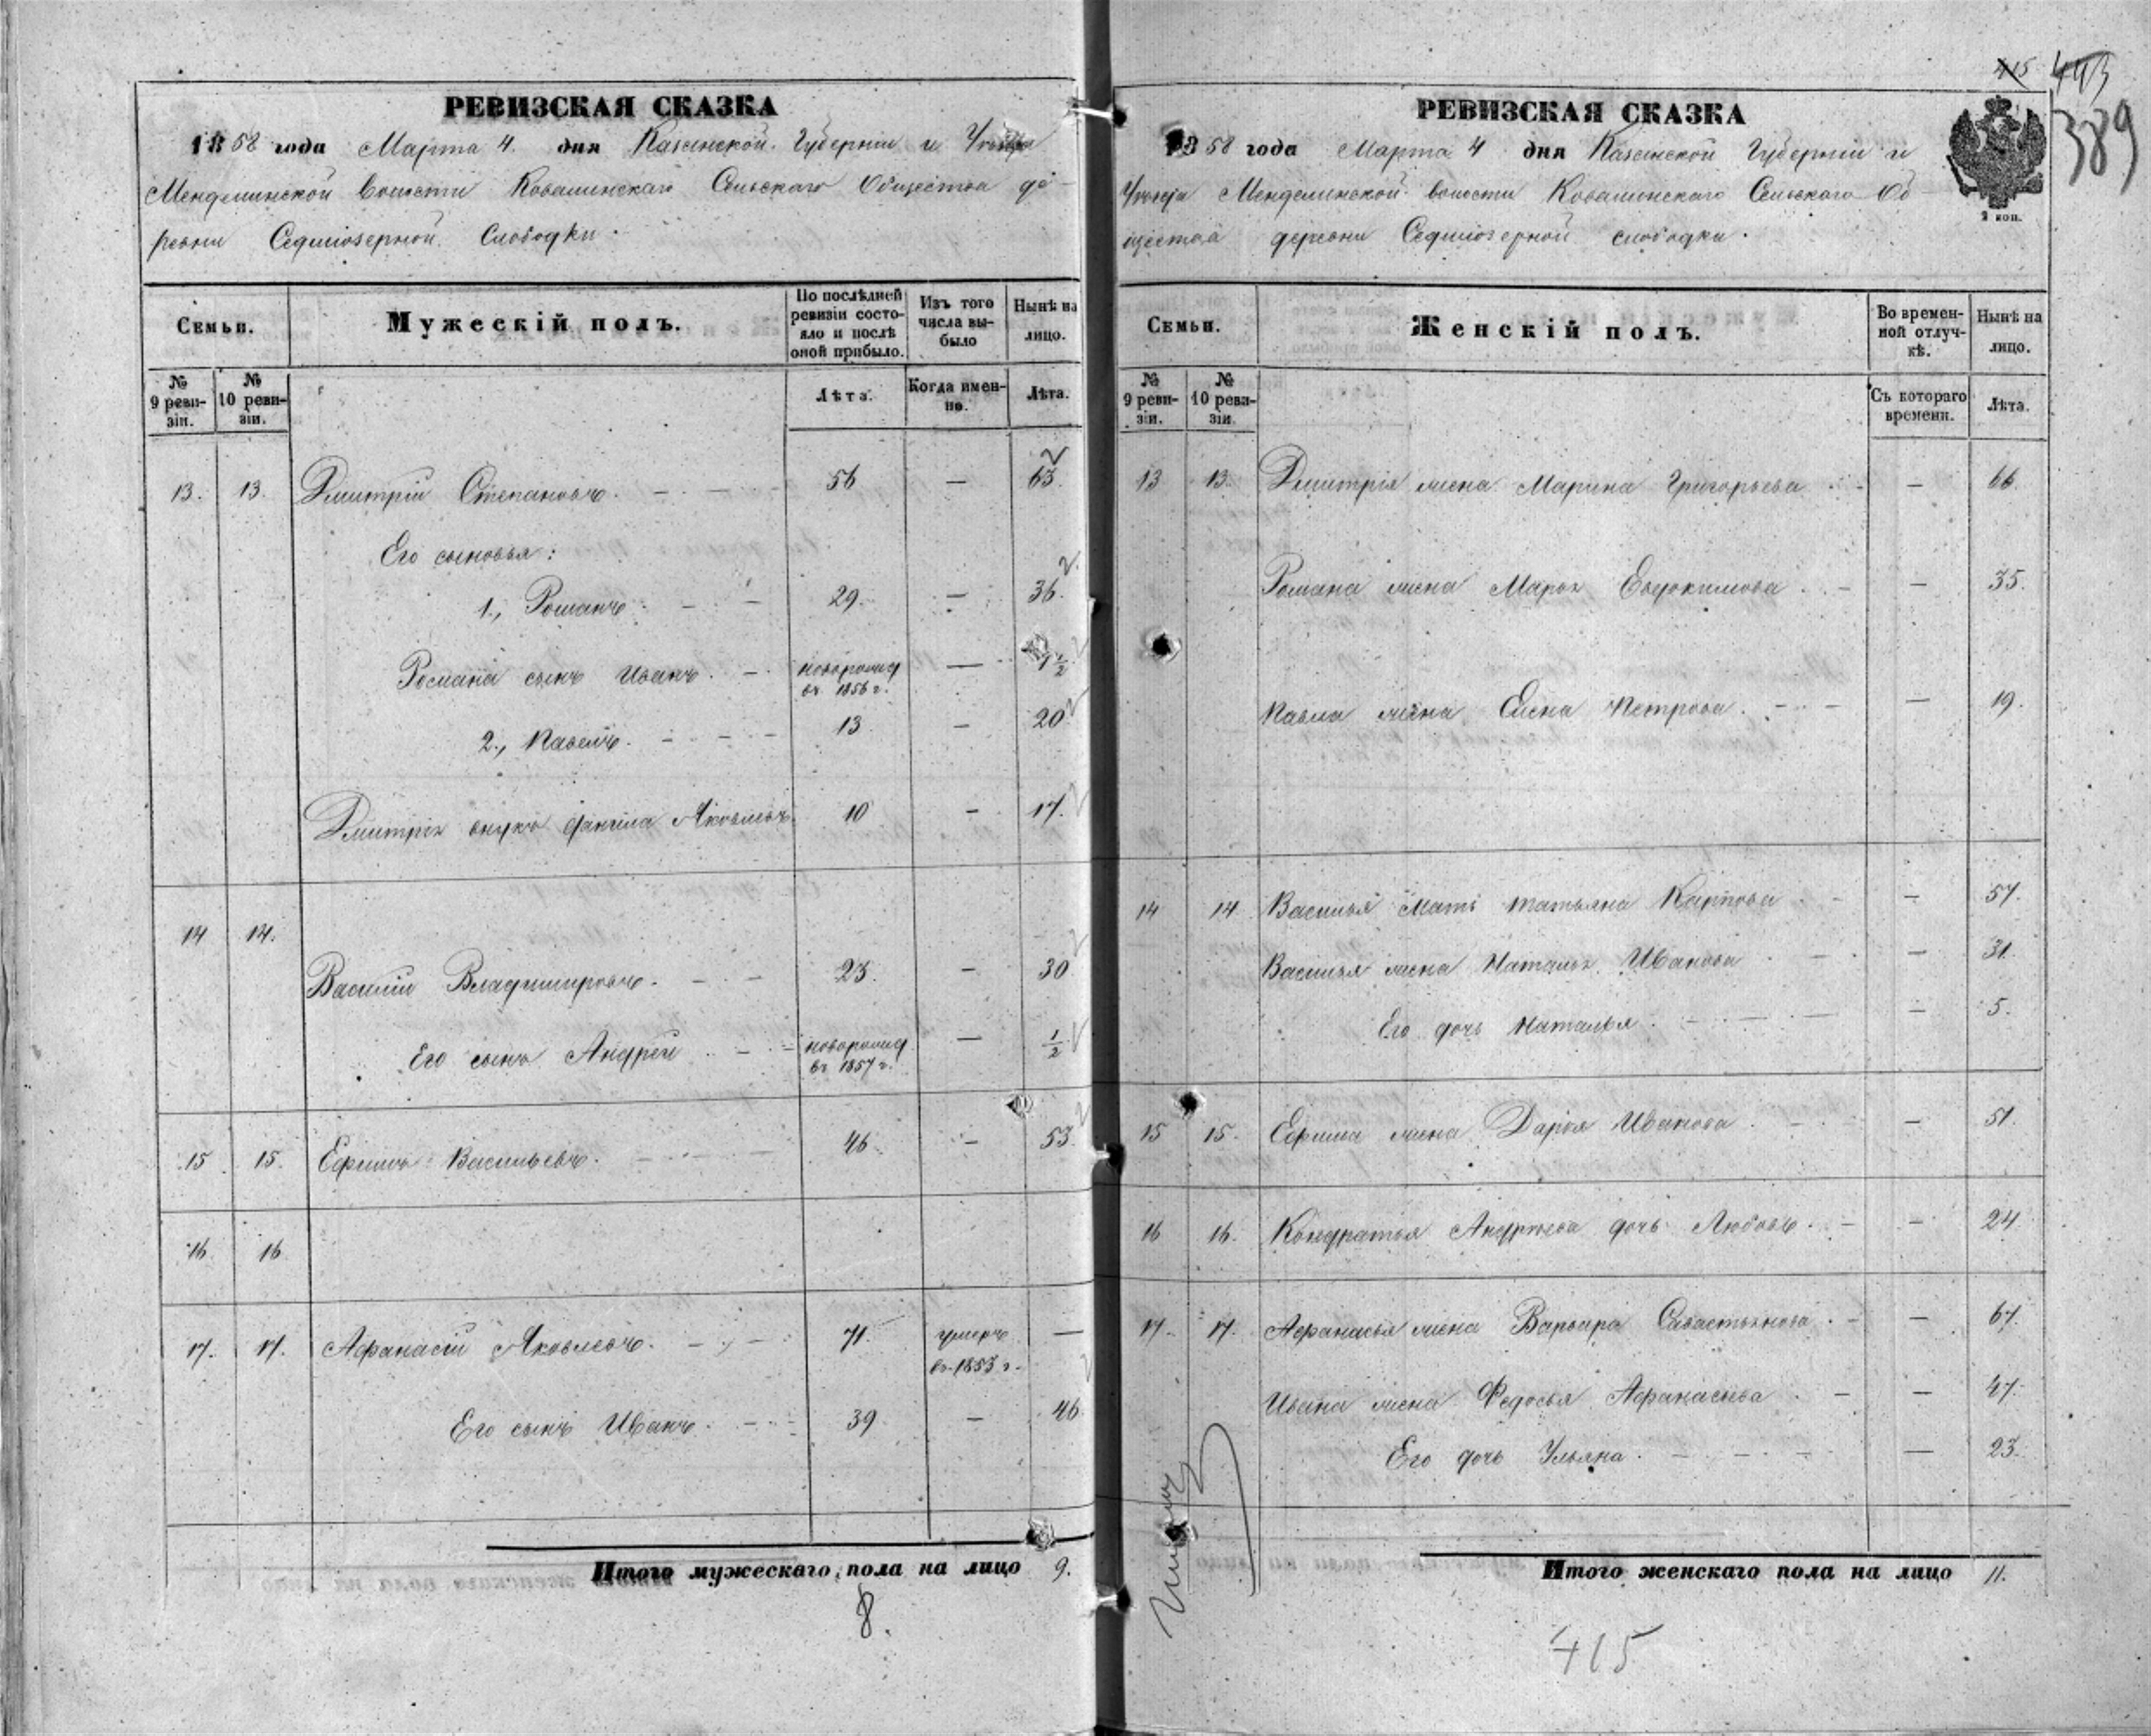 РЕВИЗСКАЯ СКАЗКА
1858 года Марта 4. дня Казанской Губерніи и Уѣзда
Менделинской Волости Ковалинскаго Сельскаго Общества де-
ревни Седміозерной Слободки.
Семьи.
Мужескій полъ.
По послѣдней ревизіи состо-
яло и послѣ
оной прибыло.
Изъ того
числа вы-
было
Нынѣ на
лицо.
№
9 реви-
зіи.
№
10 реви-
зіи.
Лѣта.
Когда имен-
но.
Лѣта.
13. 13. Дмитрій Степановъ. 56 — 63
Его сыновья:
1., Романъ. 29. — 36.
Романа сынъ Иванъ. новорожд — 1 1/2
въ 1856 г.
2., Павелъ. 13 — 20
Дмитрія внукъ Данила Яковлевъ. 10 — 17.
14 14.
Василій Владимировъ. 23. — 30
Его сынъ Андрей новорожд — 1/2
въ 1857 г.
15. 15. Ефимъ Васильевъ. 46 — 53.
16. 16
17. 17. Афанасій Яковлевъ. 71. умеръ —
въ 1853 г.
Его сынъ Иванъ. 39 — 46.
Итого мужескаго пола на лицо 9.
8.
415 443
389
РЕВИЗСКАЯ СКАЗКА
1858 года Марта 4 дня Казанской Губерніи и
Уѣзда Менделинской волости Ковалинскаго Сельскаго Об-
щества деревни Седміозерной слободки.
2 коп.
Семьи.
Женскій полъ.
Во времен-
ной отлуч-
кѣ.
Нынѣ на
лицо.
№
9 реви-
зіи.
№
10 реви-
зіи.
Съ котораго
времени.
Лѣта.
13 13. Дмитрія жена Марина Григорьева — 66.
Романа жена Марья Евдокимова — 35.
Павла жена Елена Петрова. — 19.
14 14 Василья мать Татьяна Карпова — 57.
Василья жена Наталья Иванова — 31.
Его дочь Наталья. — 5.
15 15. Ефима жена Дарья Иванова — 51.
16 16. Кондратья Андреева дочь Любовь. — 24
17. 17. Афанасья жена Варвара Савастьянова. — 67.
Ивана жена Федосья Афанасьева — 47.
Его дочь Ульяна. — 23.
Итого женскаго пола на лицо 11.
415